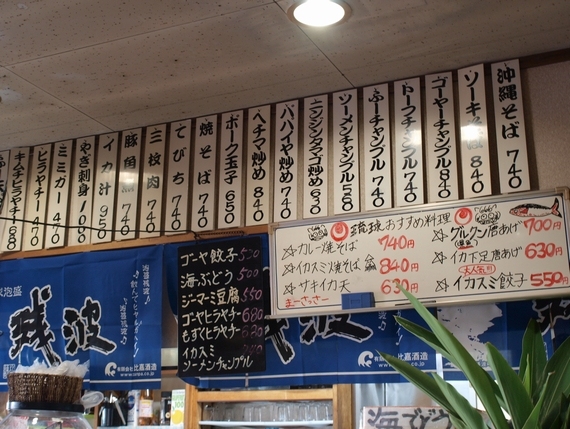 沖縄そば 740
ソーキそば 840
ゴーヤーチャンプル 740
トーフチャンプル 740
ふーチャンプル 740
ソーメンチャンプル 580
ニンジンタマゴ炒め 630
パパイヤ炒め 740
ヘチマ炒め 840
ポーク玉子 650
焼そば 740
てびち 740
三枚肉 740
豚角煮 740
イカ汁 950
やぎ刺身 1000
ミミガー 400
ヒラヤチー 470
キムチヒラヤチー 680
琉球おすすめ料理
☆カレー焼そば 740円
☆イカスミ焼そば 840円
☆ザキイカ天 630円
まーさっさー
☆グルクン唐あげ 700円
☆イカ下足唐あげ 630円
大人気!!
☆イカスミ餃子 550円
ゴーヤ餃子 520
海ぶどう 500
ジーマミ豆腐 550
ゴーヤヒラヤチー 680
もずくヒラヤチー 620
イカスミ
ソーメンチャンプル
泡盛
残波
有限会社 比嘉酒造
www.zanpa.co.jp
残波
有限会社 比嘉酒造
海ぶどう